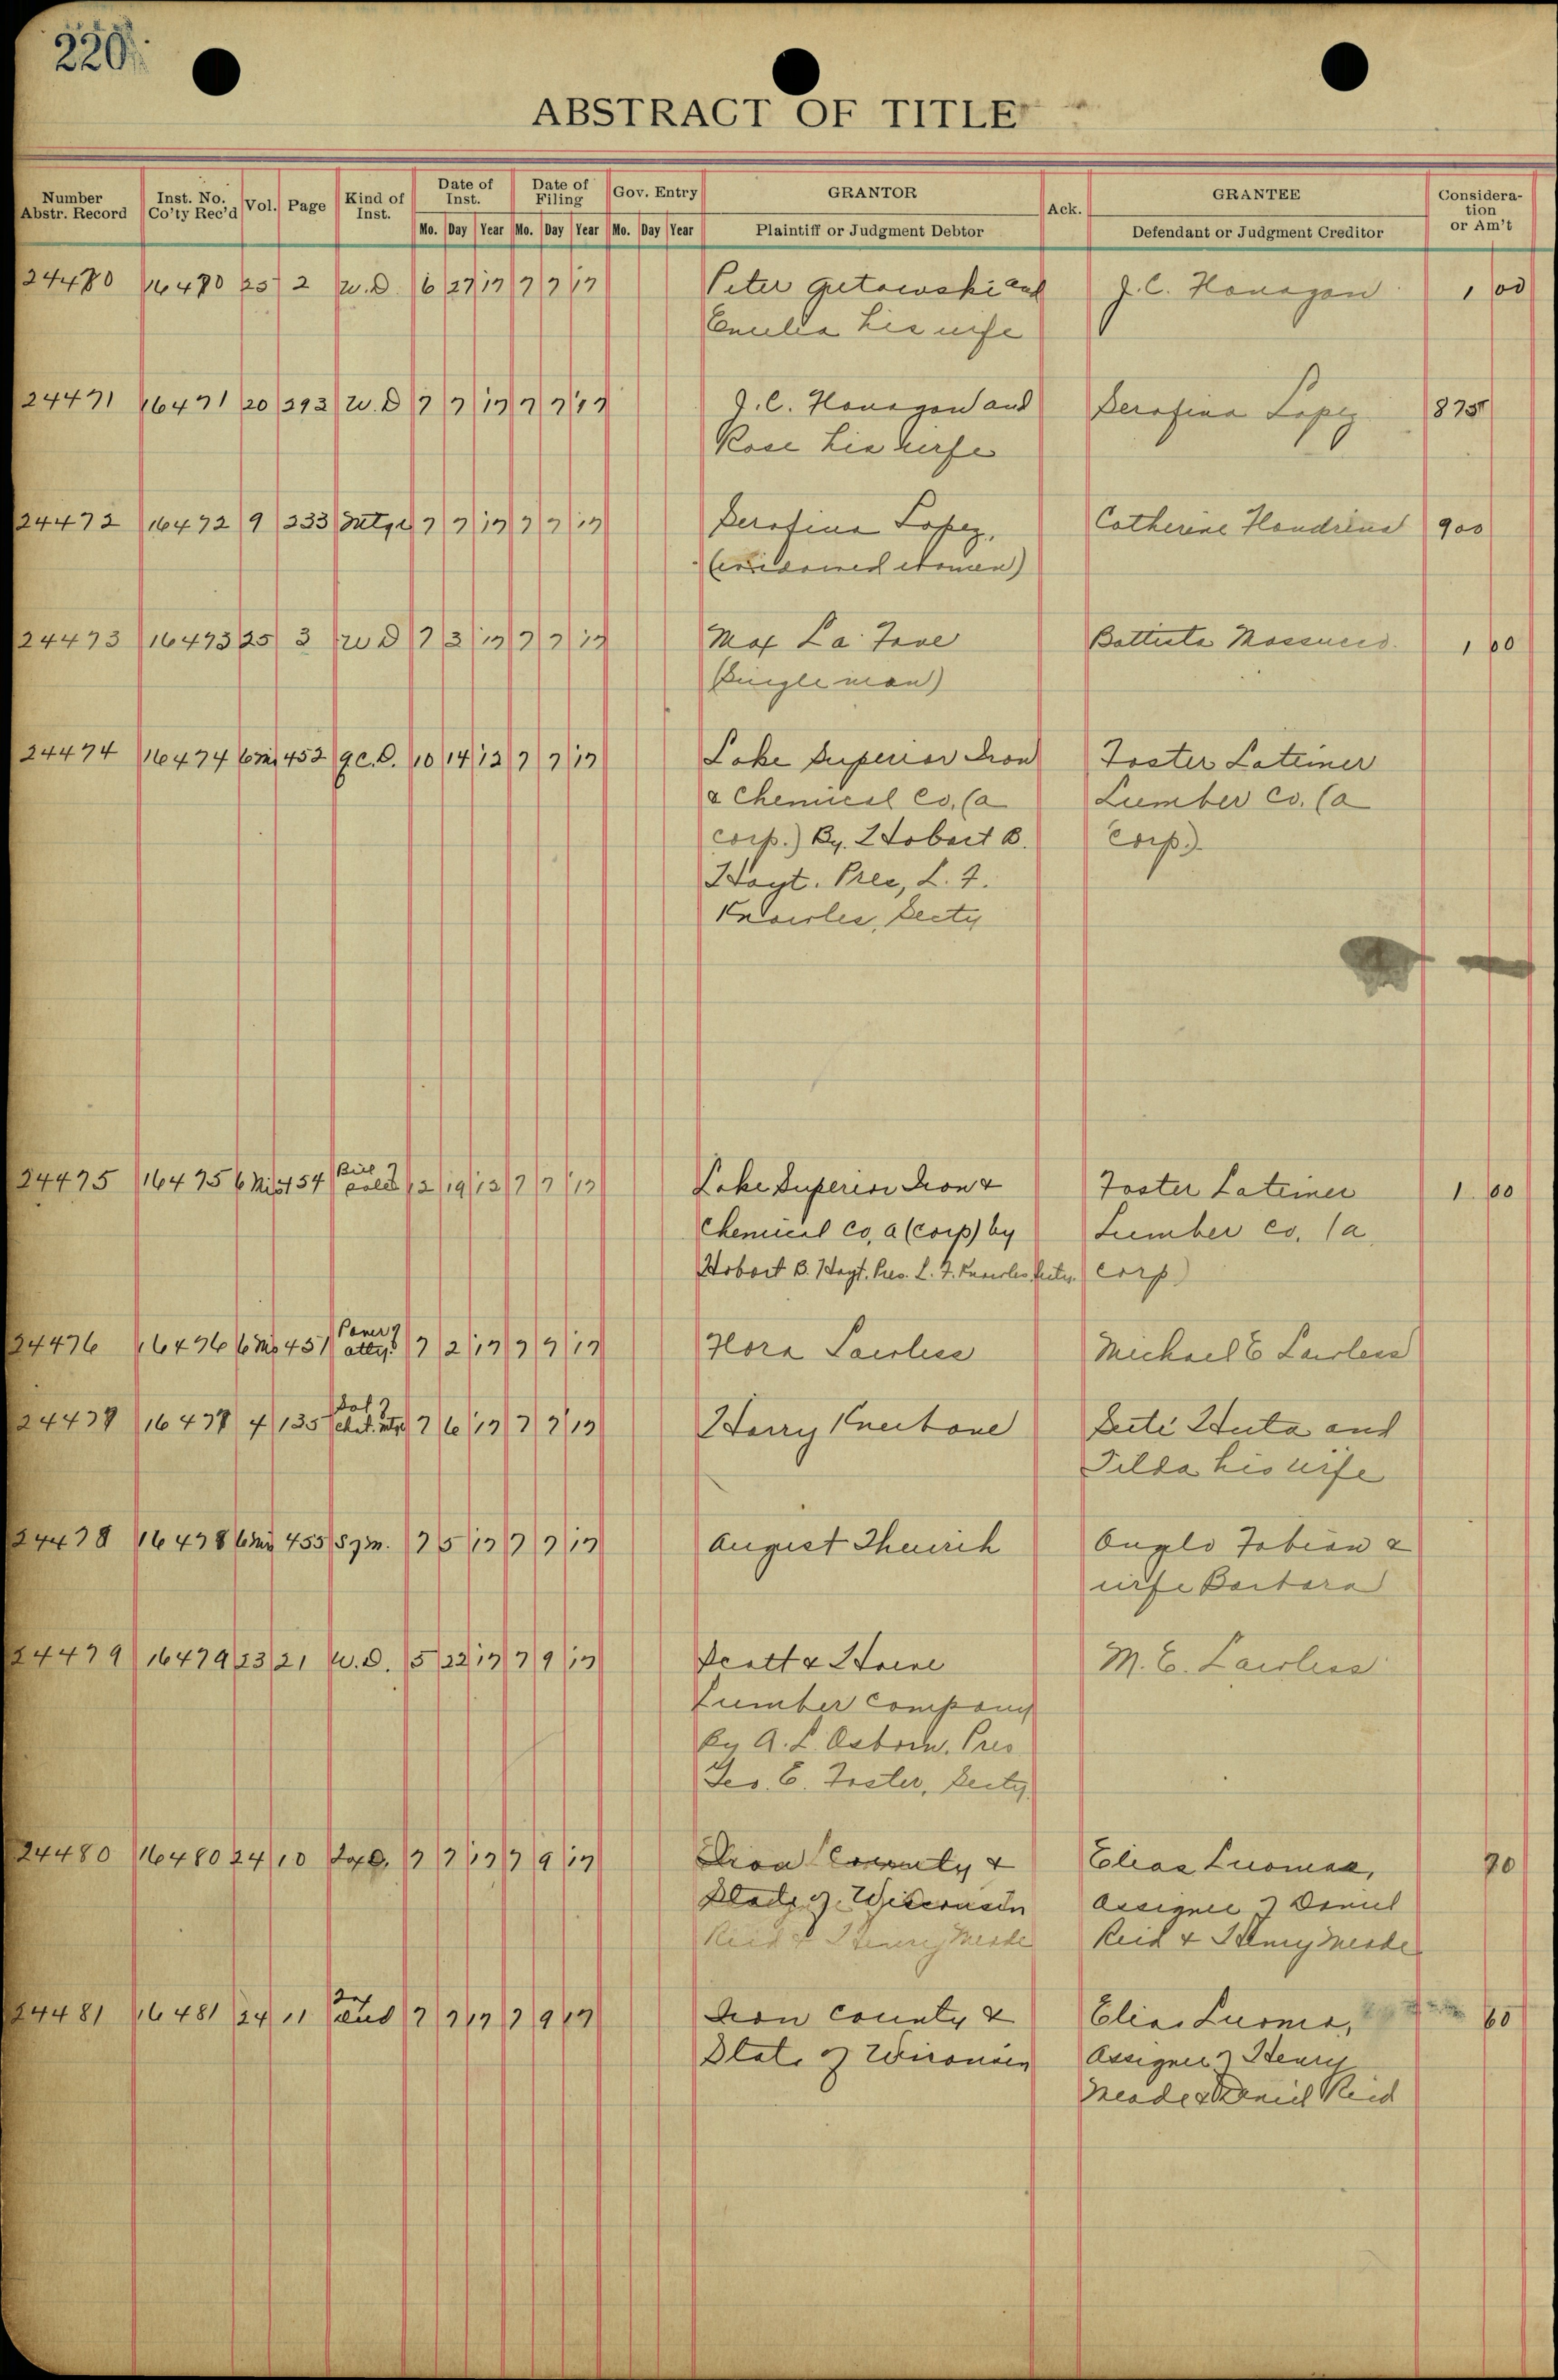 220
ABSTRACT OF TITLE
Number Abstr. Record Inst. No. Co'ty Rec'd Vol. Page Kind of Inst. Date of Inst. Date of Filing Gov. Entry GRANTOR Ack. GRANTEE Consideration or Am't
Mo. Day Year Mo. Day Year Mo. Day Year Plaintiff or Judgment Debtor Defendant or Judgment Creditor
24470 16470 25 2 W.D. 6 27 17 7 7 17 Peter Gutowski and J.C. Flanagan 1 00
Emelia his wife
24471 16471 20 293 W.D 7 7 17 7 7 17 J.C. Flanagan and Serafina Lopez 875
Rose his wife
24472 16472 9 233 Mtge 7 7 17 7 7 17 Serafina Lopez, Catherine 900
(widowed women)
24473 16473 25 3 W D 7 3 17 7 7 17 Max La Fave Battista 1 00
(Single man)
24474 16474 6 Mis 452 Q.C.D. 10 14 12 7 7 17 Lake Superior Iron Foster Latimer
& Chemical Co, (a Lumber Co. (a
corp.) By. Hobart B. Corp.)
Hoyt. Pres, L. F.
Knowles, Secty
24475 16475 6 Mis 454 Bill of Sale 12 19 12 7 7 17 Lake Superior Iron & Foster Latimer 1.00
Chemical Co, a (Corp) by Lumber Co. (a
Hobart B. Hoyt. Pres. L. F. Knowles Secty. Corp)
24476 16476 6 Mis 451 Power of atty. 7 2 17 7 9 17 Flora Lawless Michael E Lawless
24477 16477 4 135 Sat of Chat. Mtge 7 6 17 7 7 17 Harry Knebone Huta and
Tilda his wife
24478 16478 6 Mis 455 S of M. 7 5 17 7 7 17 August Theurich Anglo Fabian &
wife Barbara
24479 16479 23 21 W.D. 5 22 17 7 9 17 Scott & Howe M. E. Lawless
Lumber Company
By A. L. Osborn. Pres
Geo. E. Foster, Secty.
24480 16480 24 10 Tax D. 7 7 17 7 9 17 Iron County & Elias Luomae, 70
State of Wisconsin Assignee of Daniel
Reid & Henry Meade Reid & Henry Meade
24481 16481 24 11 7 7 17 7 9 17 Iron County & Elias Luoma, 60
State of Wisconsin Assignee of Henry
Meade & Daniel Reid